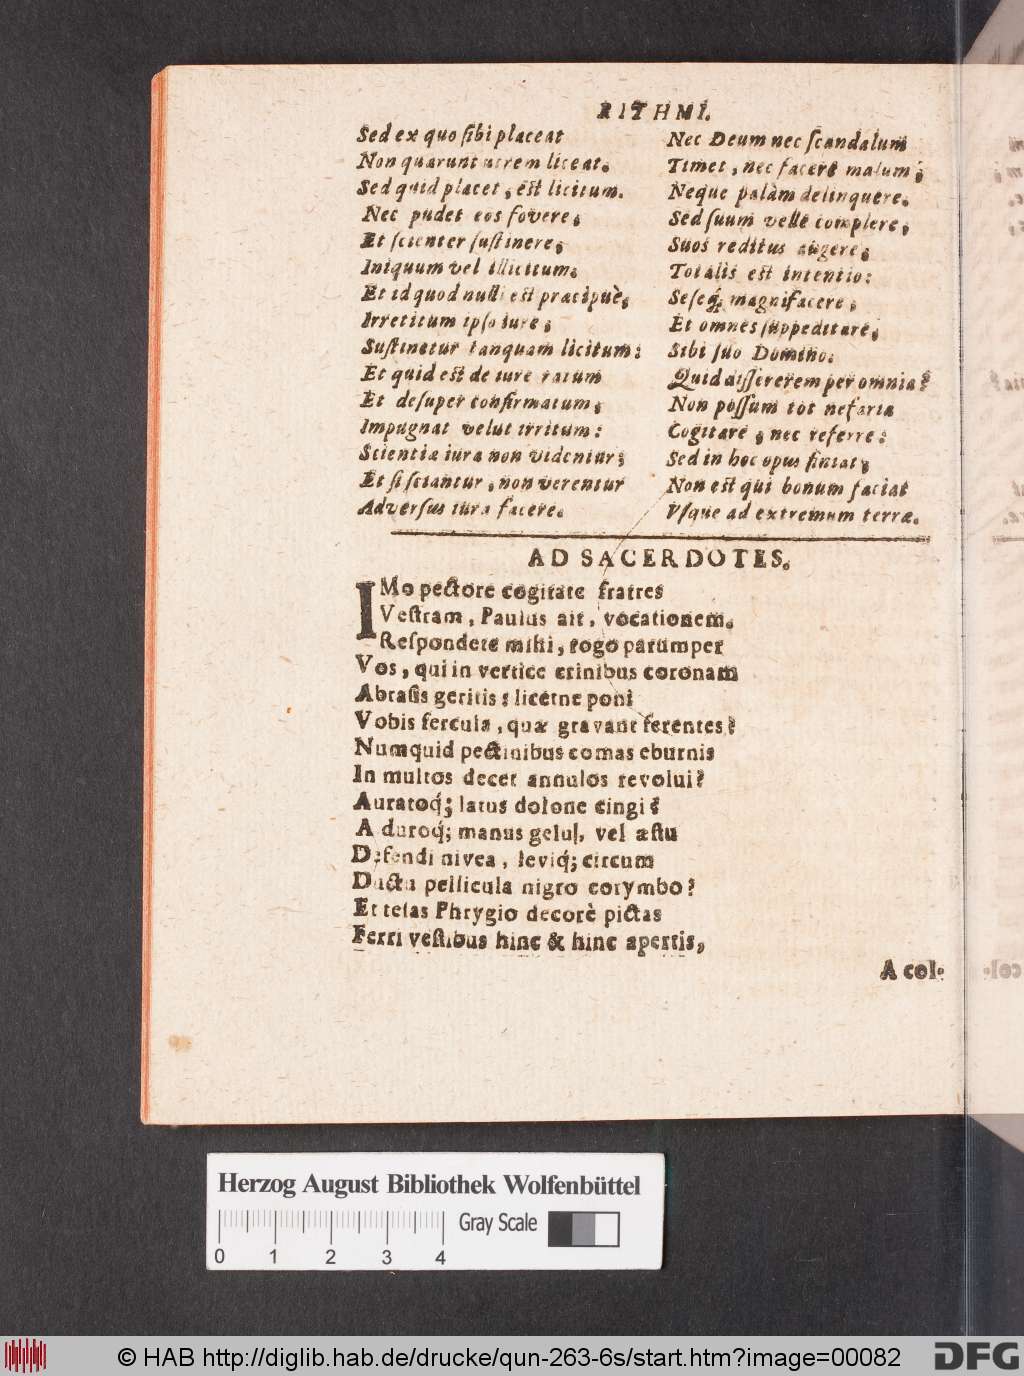 RITHMI.
Sed ex quo ſibi placeat
Non quærunt utrem liceat.
Sed quid placet, eſt licitum.
Nec pudet eos fovere;
Et ſcienter ſuſtinere;
Iniquum vel illicitum.
Et id quod nulli eſt præcipuè;
Irretitum ipſo iure;
Suſtinetur tanquam licitum:
Et quid eſt de iure ratum
Et deſuper confirmatum;
Impugnat velut irritum:
Scientiæ iura non videntur;
Et ſi ſciantur, non verentur
Adverſus iura facere.
Nec Deum nec ſcandalum
Timet, nec facere malum;
Neque palàm delinquere.
Sed ſuum velle complere;
Suos reditus augere;
Totalis eſt intentio:
Seſeq́; magnifacere;
Et omnes ſuppeditare;
Sibi ſuo Domino.
Quid diſſererem per omnia?
Non poſſum tot nefaria
Cogitare, nec referre:
Sed in hoc opus finiat;
Non eſt qui bonum faciat
Vſque ad extremum terræ.
AD SACERDOTES.
IMo pectore cogitate fratres
Veſtram, Paulus ait, vocationem.
Reſpondete mihi, rogo parumper
Vos, qui in vertice crinibus coronam
Abraſis geritis: licetne poni
Vobis fercula, quæ gravant ferentes?
Numquid pectinibus comas eburnis
In multos decet annulos revolui?
Auratoq́; latus dolone cingi?
A duroq́; manus gelu, vel æſtu
Defendi nivea, leviq́; circum
Ducta pellicula nigro corymbo?
Et telas Phrygio decorè pictas
Ferri veſtibus hinc & hinc apertis,
A col-
Herzog August Bibliothek Wolfenbüttel
Gray Scale
0 1 2 3 4
© HAB http://diglib.hab.de/drucke/qun-263-6s/start.htm?image=00082
DFG